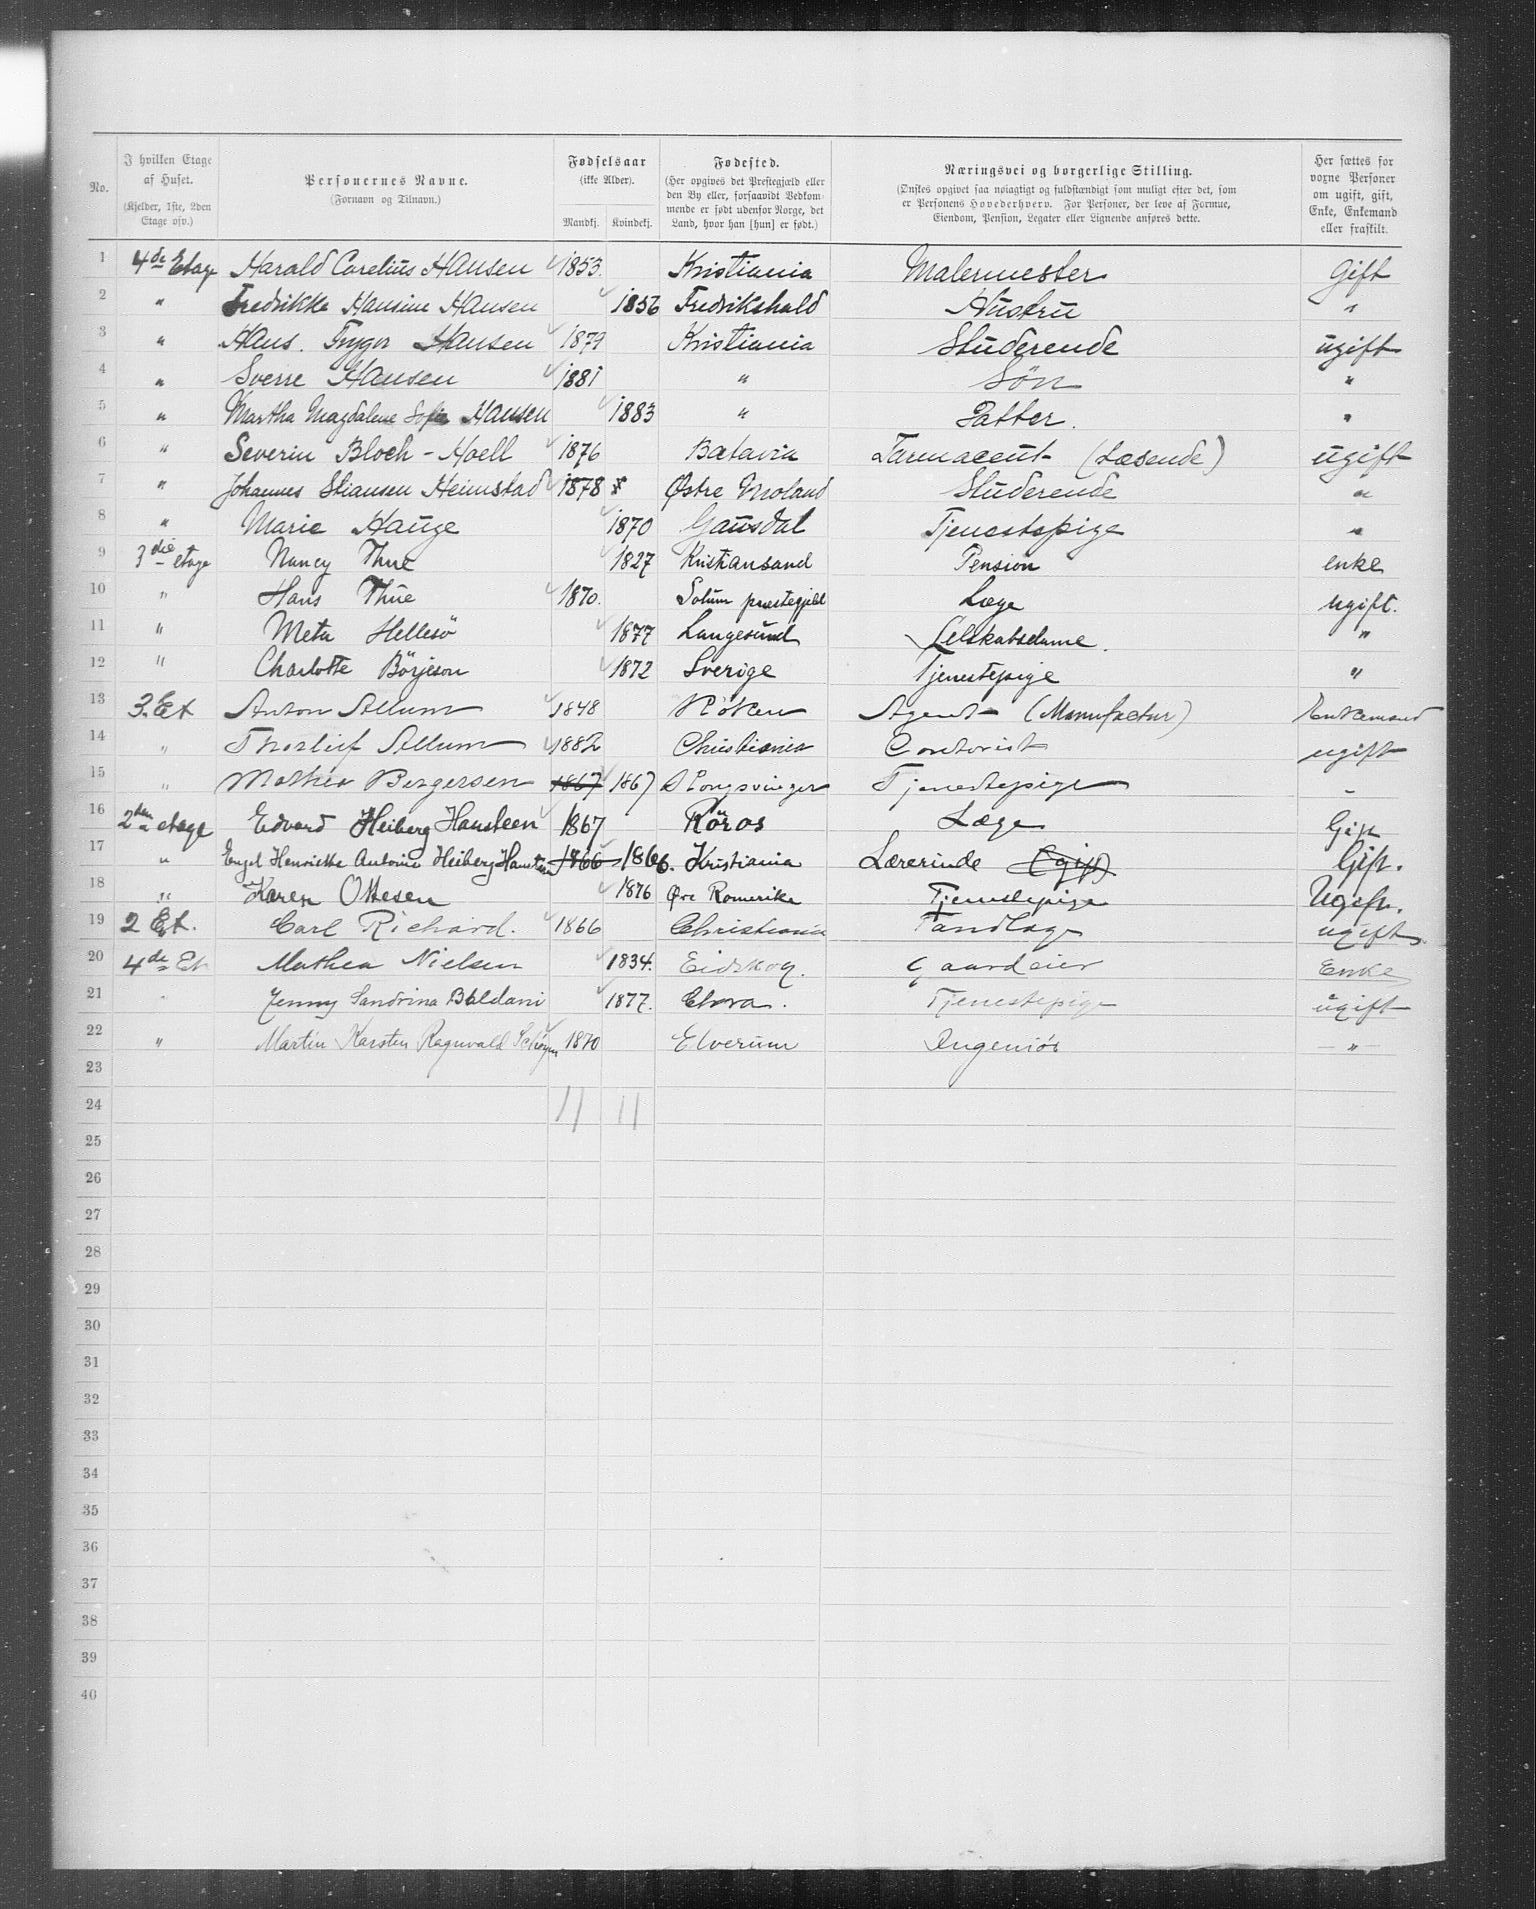 No. | I hvilken Etage af Huset. (Kjelder, 1ste, 2den Etage osv.) | Personernes Navne. (Fornavn og Tilnavn.) | Fødselsaar (ikke Alder). Mandkj. Kvindekj. | Fødested. (Her opgives det Prestegjæld eller den By eller, forsaavidt Vedkommende er født udenfor Norge, det Land, hvor han [hun] er født.) | Næringsvei og borgerlige Stilling. (Ønskes opgivet saa nøiagtigt og fuldstændigt som muligt efter det, som er Personens Hovederhverv. For Personer, der leve af Formue, Eiendom, Pension, Legater eller Lignende anføres dette. | Her sættes for voxne Personer om ugift, gift, Enke, Enkemand eller fraskilt.
1 4de Etage Harald Corelius Hansen 1853. Kristiania Malermester Gift
2 " Fredrikke Hansine Hansen 1856 Fredrikshald Hustru "
3 " Hans. Trygve Hansen 1879 Kristiania Studerende ugift
4 " Sverre Hansen 1881 " Søn "
5 " Martha Magdalene Sofie Hansen 1883 " Datter. "
6 " Severin Bloch-Hoell 1876 Batavia Farmaceut (Læsende) ugift
7 " Johannes Stiansen Heimstad 1878 Østre Moland Studerende "
8 " Marie Hauge 1870 Gausdal Tjenestepige "
9 3die etage Nancy Thue 1827 Kristiansand Pension enke
10 " Hans Thue 1870. Solum prestegjeld Læge ugift.
11 " Meta Hellesö 1877 Langesund Selskabsdame. "
12 " Charlotte Börjeson 1872 Sverige Tjenestepige "
13 3. Et Anton Allum 1848 Röken Agent (Manufactur) Enkemand
14 " Thorleif Allum 1882 Christiania Contorist ugift
15 " Mathea Bergersen 1867 1867 Kongsvinger Tjenestepige -
16 2den etage Edvard Heiberg Hansteen 1867 Röros Læge Gift
17 " Engel Henriette Antonie Heiberg Hansteen 1866 1866. Kristiania Lærerinde (gift) Gift.
18 " Karen Ottesen 1876 Øvre Romerike Tjenestepige Ugift.
19 2 Et. Carl Richard. 1866 Christiania Tandlæge ugift
20 4de Et Mathea Nielsen 1834. Eidskog. Gaardeier Enke
21 " Jenny Sandrina 1877. Tjenestepige ugift
22 " Martin Karsten Ragnvald Schøyen 1870 Elverum Ingeniør "
23
24 11 11
25
26
27
28
29
30
31
32
33
34
35
36
37
38
39
40